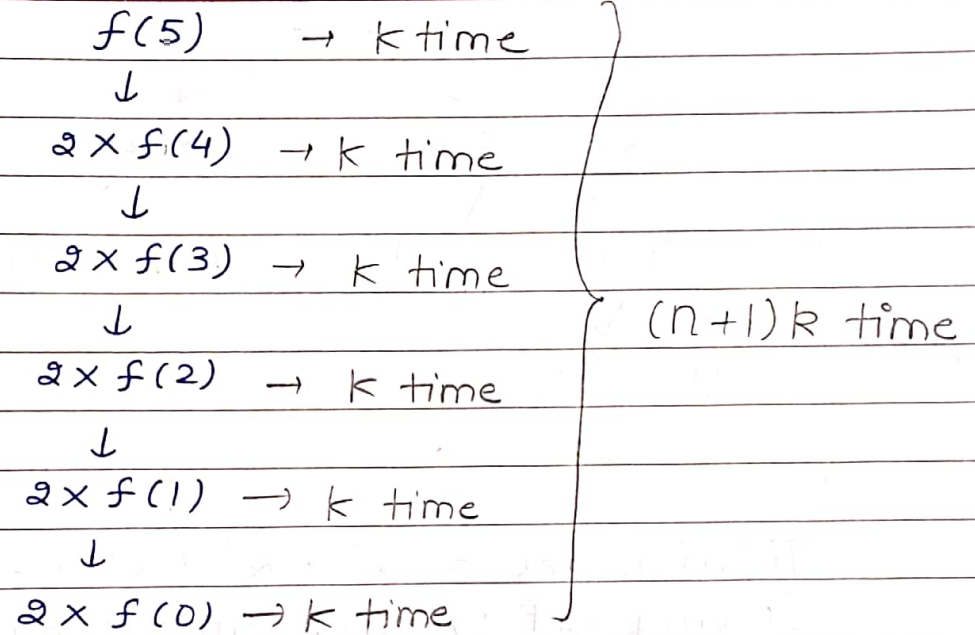 f(5) → k time
↓
2 × f(4) → k time
↓
2 × f(3) → k time
↓
(n+1)k time
2 × f(2) → k time
↓
2 × f(1) → k time
↓
2 × f(0) → k time